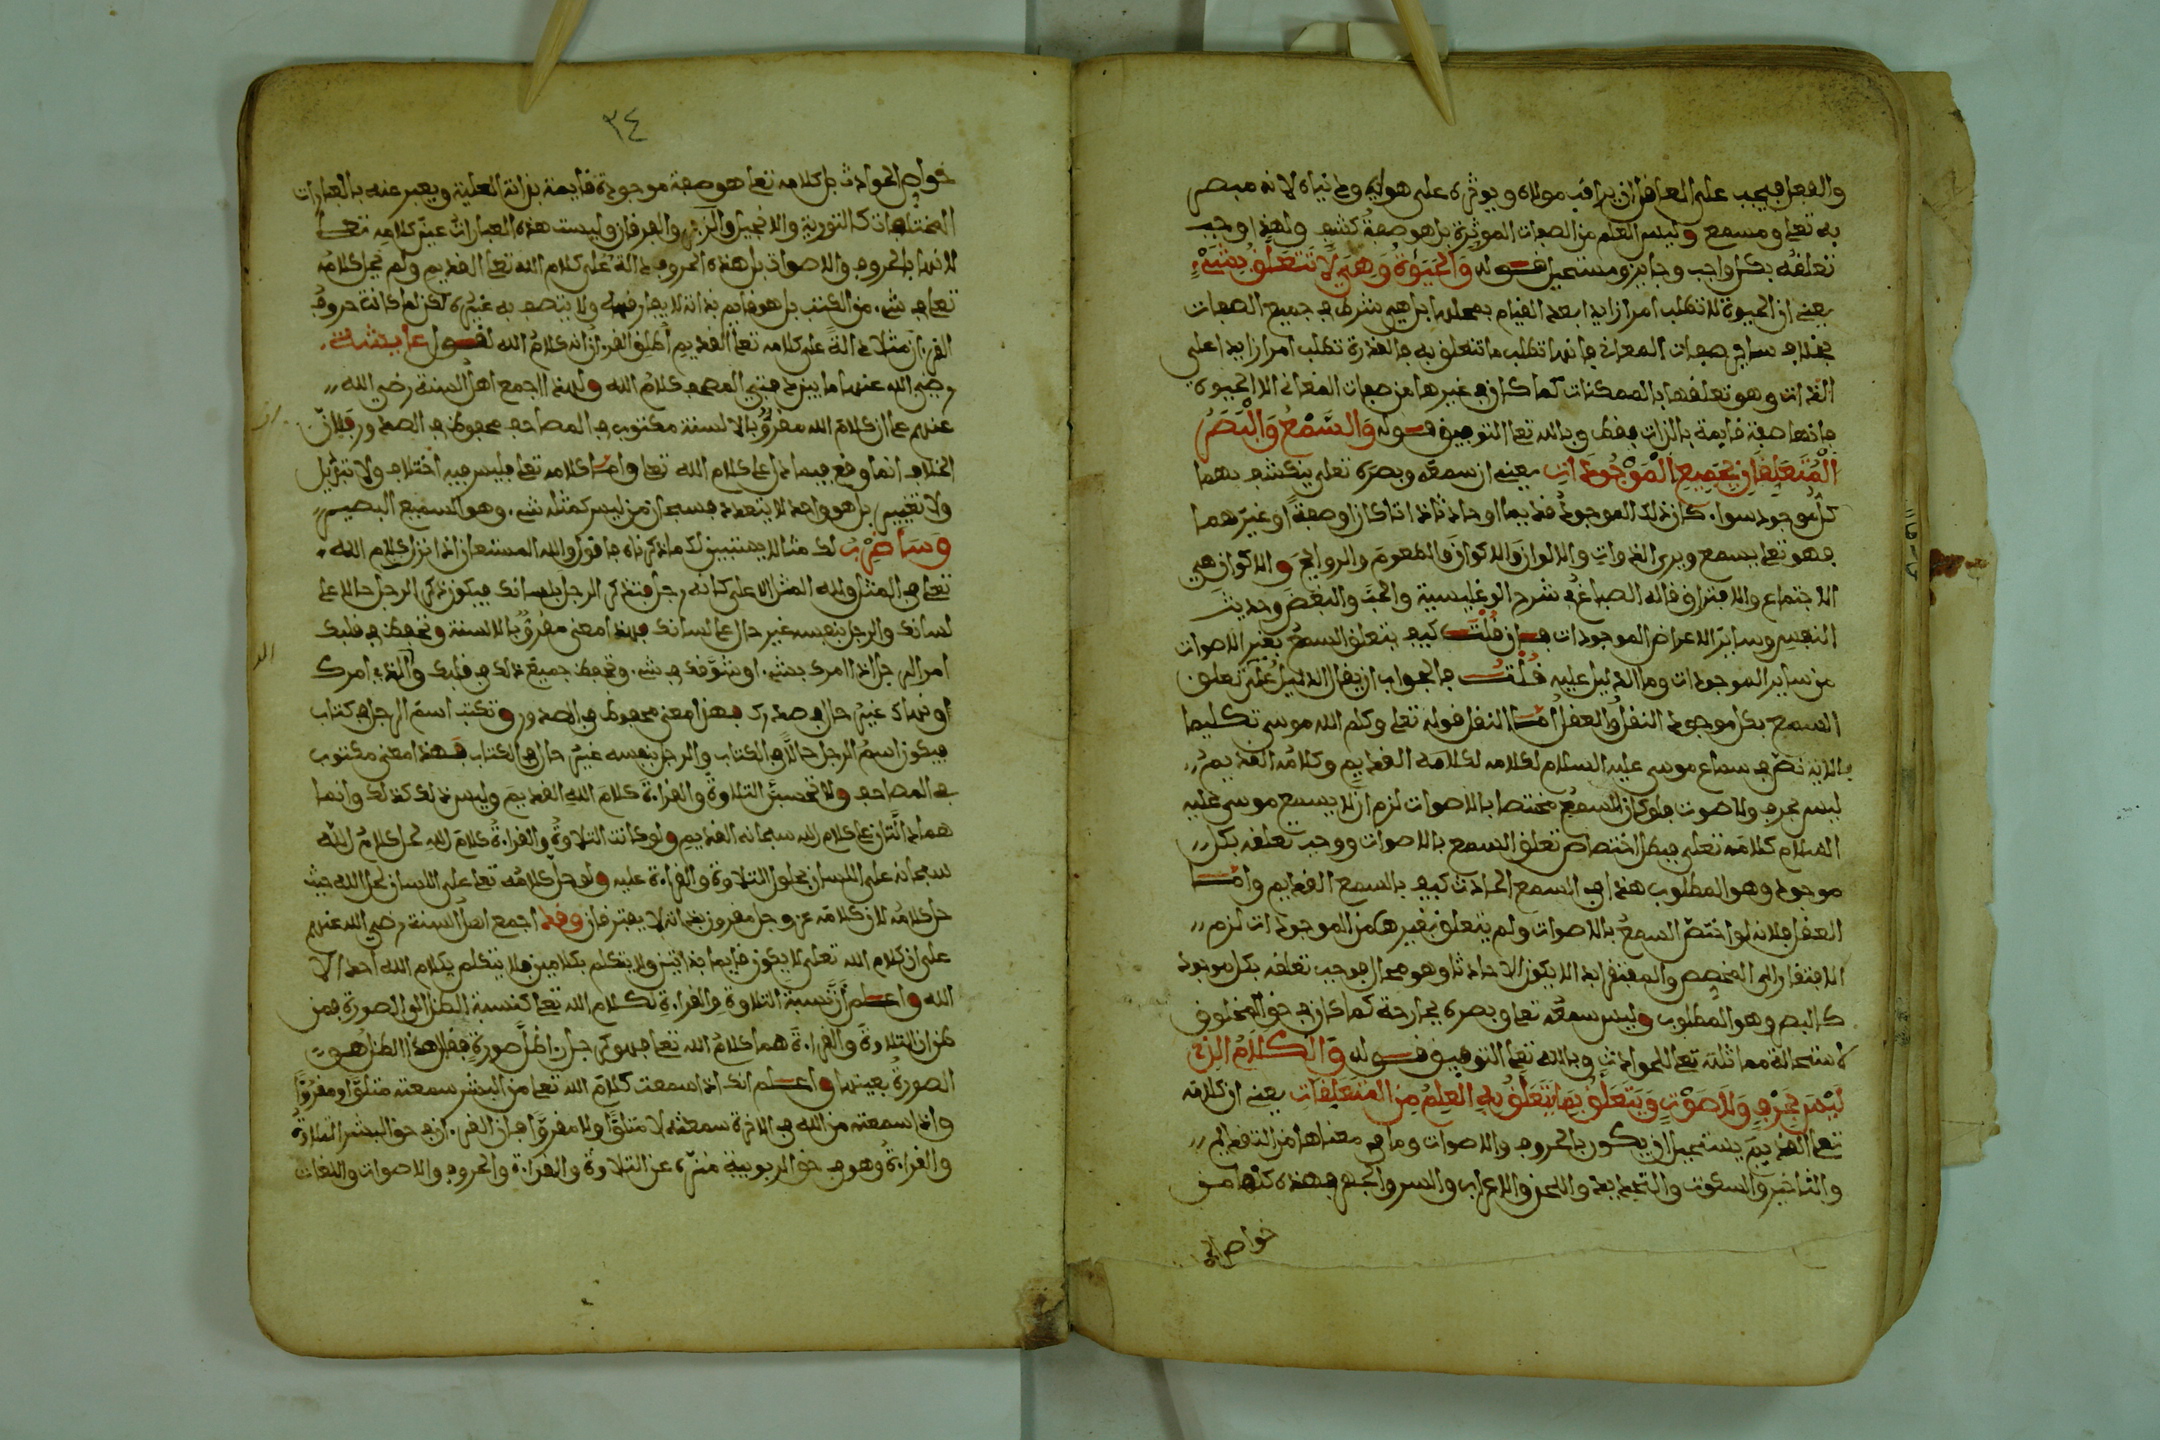 والفعل فيجب على العاقل ان يراقب مولاه ويوثره على هواه ودنياه لانه مبصر
به تعلى ومسمع وليس العلم من الصفات الموثرة بل هو صفة كشف ولهذا وجب
تعلقه بكل واجب وجايز ومستحيل قوله وَالْحَيَوٰةُ وَهِيَ لَا تَتَعَلَّقُ بِشَيْءٍ
يعني ان الحيوة لا تطلب امرا زايدا بعد القيام بمحلها بل هي شرط في جميع الصفات
بخلاف ساير صفات المعاني فانها تطلب ما تتعلق به فالقدرة تطلب امرا زايدا على
الذات وهو تعلقها بالممكنات كما كان في غيرها من صفات المعاني الا الحيوة
فانها صفة قايمة بالذات فقط وبالله تعلى التوفيق قوله وَالسَّمْعُ وَالْبَصَرُ
الْمُتَعَلِّقَانِ بِجَمِيعِ الْمَوْجُودَاتِ يعني ان سمعه وبصره تعلى ينكشف بهما
كل موجود سواء كان ذلك الموجود قديما او حادثا ذاتا كان او صفة او غيرهما
فهو تعلى يسمع ويرى الذوات والالوان والاكوان والطعوم والروايح والاكوان هي
الاجتماع والافتراق قاله الصباغ في شرح الوغليسية والحب والبغض وحديث
النفس وساير الاعراض الموجودات فان قلت كيف يتعلق السمع بغير الاصوات
من ساير الموجودات وما الدليل عليه قلت فالجواب ان يقال الدليل على تعلق
السمع بكل موجود النقل والعقل اما النقل فقوله تعلى وكلم الله موسى تكليما
فالاية نص في سماع موسى عليه السلام لكلامه القديم وكلامه القديم
ليس بحرف ولا صوت فلو كان السمع مختصا بالاصوات لزم ان لا يسمع موسى عليه
السلام كلامه تعلى فبطل اختصاص تعلق السمع بالاصوات ووجب تعلقه بكل
موجود وهو المطلوب هذا في السمع الحادث كيف بالسمع القديم واما
العقل فلانه لو اختص السمع بالاصوات ولم يتعلق بغيرها من الموجودات لزم
الافتقار الى المخصص والمفتقر لا يكون الا حادثا وهو محال فوجب تعلقه بكل موجود
كالبصر وهو المطلوب وليس سمعه تعلى وبصره بجارحة كما كان في حق المخلوق
لاستحالة مماثلته تعلى للحوادث وبالله تعلى التوفيق قوله وَالْكَلَامُ الَّذِي
لَيْسَ بِحَرْفٍ وَلَا صَوْتٍ وَيَتَعَلَّقُ بِمَا يَتَعَلَّقُ بِهِ الْعِلْمُ مِنَ الْمُتَعَلَّقَاتِ يعني ان كلامه
تعلى القديم يستحيل ان يكون بالحروف والاصوات وما في معناها من التقديم
والتاخير والسكوت والتجديد واللحن والاعراب والسر والجهر فهذه كلها من
خواص الح
٣٤
خواص الحوادث بل كلامه تعلى هو صفة موجودة قايمة بذاته العلية ويعبر عنه بالعبارات
المختلفات كالتورية والانجيل والزبور والفرقان وليست هذه العبارات عين كلامه تعلى
لانها بالحروف والاصوات بل هذه الحروف دالة على كلام الله تعلى القديم ولم يحل كلامه
تعلى في شيء من الكتب بل هو قايم بذاته لا يفارقه ولا يتصف به غيره لكن لما كانت حروف
القرءان مثلا دالة على كلامه تعلى القديم اطلق القرءان انه كلام الله لقول عايشة
رضي الله عنها ما بين دفتي المصحف كلام الله ولهذا اجمع اهل السنة رضي الله
عنهم على ان كلام الله مقروّ بالالسنة مكتوب في المصاحف محفوظ في الصدور فلان
الخلاف انما وقع فيما دل على كلام الله تعلى واما كلامه تعلى فليس فيه اختلاف ولا تبديل
ولا تغيير بل هو واحد لا يتعدد فسبحان من ليس كمثله شيء وهو السميع البصير
وَسَأَضْرِبُ لك مثالا يستبين لك ما ذكرناه فاقول والله المستعان اذا نزل كلام الله
تعلى في المثل ولله المثل الاعلى كانه رجل فتذكر الرجل بلسانك فيكون ذكر الرجل حالا على
لسانك والرجل بنفسه غير حال على لسانك فهذا معنى مقروّ بالالسنة وتحفظ في قلبك
امر الرجل اذا امرك بشيء او شوّقك في شيء وتحفظ جميع ذلك في قلبك والذي امرك
او نهاك غير حال في صدرك فهذا معنى محفوظ في الصدور وتكتب اسم الرجل في كتاب
فيكون اسم الرجل حالّا في الكتاب والرجل بنفسه غير حال في الكتاب فهذا معنى مكتوب
في المصاحف ولا تحسبنّ التلاوة والقراءة كلام الله القديم وليس ذلك كذلك وانما
هما دالّتان على كلام الله سبحانه القديم ولو كانت التلاوة والقراءة كلام الله لحل كلام الله
سبحانه على اللسان بحلول التلاوة والقراءة عليه ولو حل كلامه تعلى على اللسان لحل الله حيث
حل كلامه لان كلامه عز وجل مقرون بذاته لا يفترقان وقد اجمع اهل السنة رضي الله عنهم
على ان كلام الله تعلى لا يكون قايما بذاتين ولا يتكلم بكلامين فلا يتكلم بكلام الله احد الا
الله واعلم ان نسبة التلاوة والقراءة لكلام الله تعلى كنسبة الظل الى الصورة فمن
ظن ان التلاوة والقراءة هما كلام الله تعلى فهو كرجل رءا ظل صورة فقال هذا الظل هو
الصورة بعينها واعلم انك اذا سمعت كلام الله تعلى من البشر سمعته متلوّا ومقروّا
واذا سمعته من الله في الاخرة سمعته لا متلوّا ولا مقروّا فان القرءان في حق البشر التلاوة
والقراءة وهو في حق الربوبية منزّه عن التلاوة والقراءة والحروف والاصوات واللغات